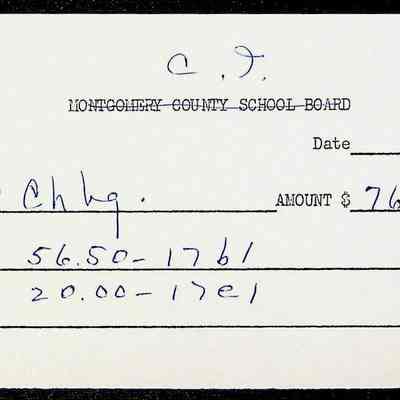 C. I.
MONTGOMERY COUNTY SCHOOL BOARD
Date
AMOUNT $ 76
56.50 - 17b1
20.00 - 17e1